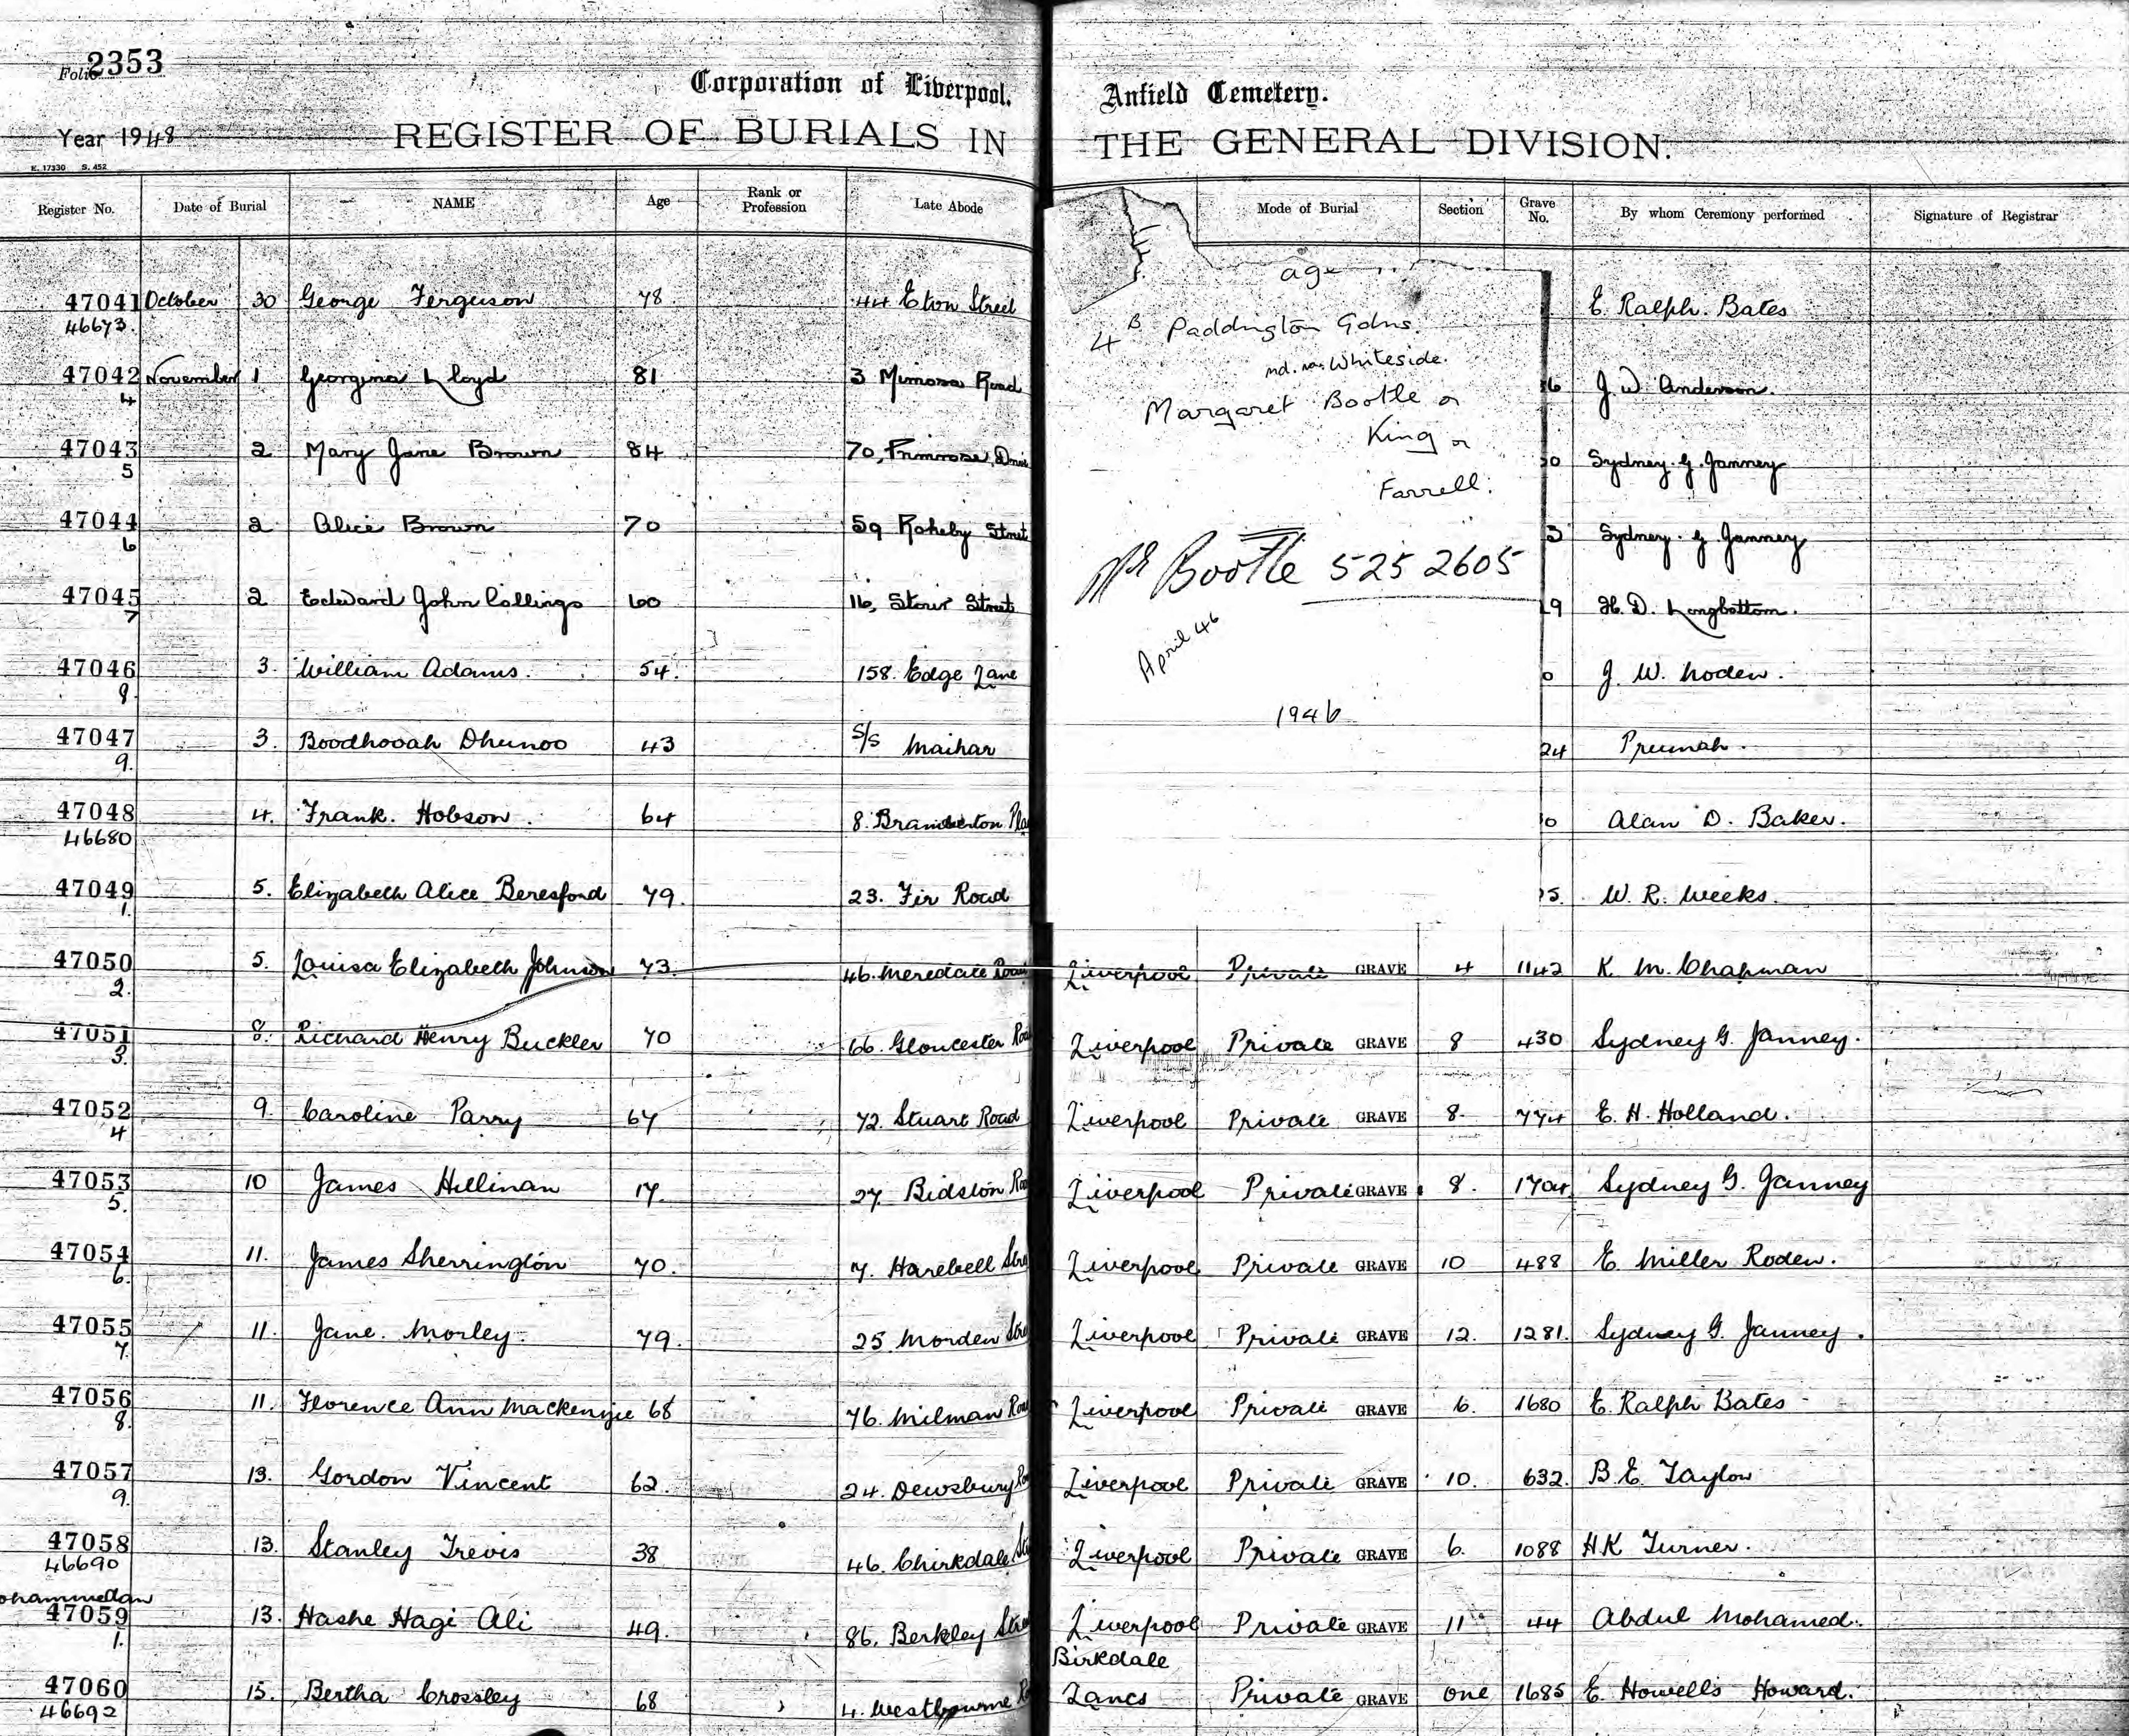 Folio 2353
Corporation of Liverpool. Anfield Cemetery.
Year 1948 REGISTER OF BURIALS IN THE GENERAL DIVISION.
K. 17330 S. 452
Register No. Date of Burial NAME Age Rank or Profession Late Abode Mode of Burial Section Grave No. By whom Ceremony performed Signature of Registrar
47041 October 30 George Ferguson 78 44 Eton Street E. Ralph. Bates
46673.
47042 November 1 Georgina Lloyd 81 3 Mimosa Road 6 J. W. Anderson.
4
47043 2 Mary Jane Brown 84 70, Primrose Drive 0 Sydney. G. Janney
5
47044 2 Alice Brown 70 59 Rokeby Street 3 Sydney. G Janney
6
47045 2 Edward John Collings 60 116, Stour Street 9 H. D. Longbottom.
7
47046 3. William Adams. 54. 158. Edge Lane 0 J. W. Noden.
8.
47047 3. Boodhooah Dhunoo 43 S/S Maihar 24 Preumah.
9.
47048 4. Frank. Hobson. 64 8. Bramberton Pla 0 Alan D. Baker.
46680
47049 5. Elizabeth Alice Beresford 79. 23. Fir Road 5. W. R. Weeks.
1.
age
4 B Paddington Gdns.
md. Whiteside.
Margaret Bootle or
King or
Farrell.
Mr Bootle 525 2605
April 46
1946
47050 5. Louisa Elizabeth Johnson 73. 46. Meredale Road Liverpool Private GRAVE 4 1142 K. M. Chapman
2.
47051 8. Richard Henry Buckler 70 66. Gloucester Roa Liverpool Private GRAVE 8 430 Sydney G. Janney.
3.
47052 9. Caroline Parry 67 72. Stuart Road Liverpool Private GRAVE 8. 774 E. H. Holland.
4
47053 10 James Hillinan 17. 27. Bidston Roa Liverpool Private GRAVE 8. 1704 Sydney G. Janney
5.
47054 11. James Sherrington 70. 7. Harebell Stre Liverpool Private GRAVE 10 488 E. Miller Roden.
6.
47055 11. Jane. Morley. 79. 25 Morden Stre Liverpool Private GRAVE 12. 1281. Sydney G. Janney.
7.
47056 11. Florence Ann Mackenzie 68 76. Milman Roa Liverpool Private GRAVE 6. 1680 E. Ralph Bates
8.
47057 13. Gordon Vincent 62. 24. Dewsbury Ro Liverpool Private GRAVE 10. 632. B. E. Taylor
9.
47058 13. Stanley Trevis 38 46. Chirkdale St Liverpool Private GRAVE 6. 1088 H.K Turner.
46690
ohammedan
47059 13. Hashe Hagi Ali 49. 86. Berkley Stre Liverpool Private GRAVE 11 44 Abdul Mohamed.
1.
Birkdale
47060 15. Bertha Crossley 68 4. Westbourne R Lancs Private GRAVE One 1685 E. Howells Howard.
46692